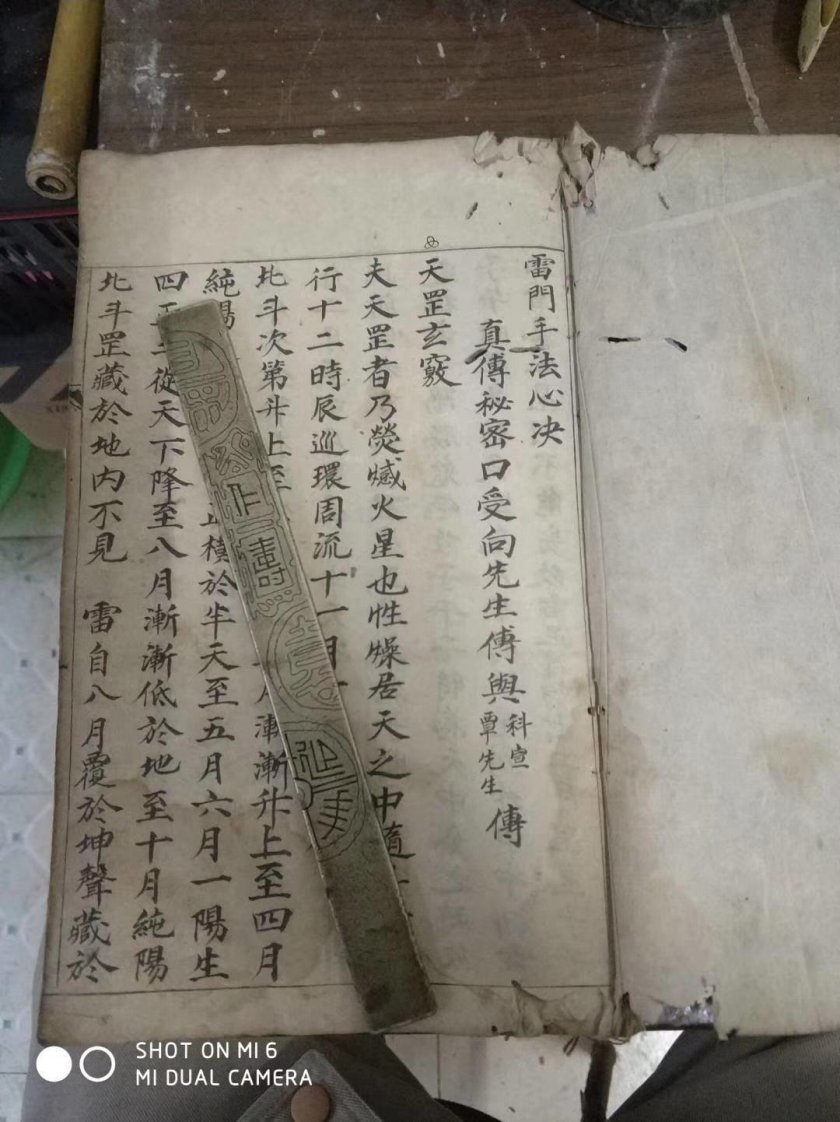 雷門手法心决
真傳秘密口受向先生傳與科宣覃先生傳
天罡玄竅
夫天罡者乃熒惑火星也性燥居天之中隨
行十二時辰巡環周流十一月
北斗次第升上至 月漸漸升上至四月
純陽 橫於半天至五月六月一陽生
四 從天下降至八月漸漸低於地至十月純陽
北斗罡藏於地内不見 雷自八月覆於坤聲藏於
SHOT ON MI 6
MI DUAL CAMERA